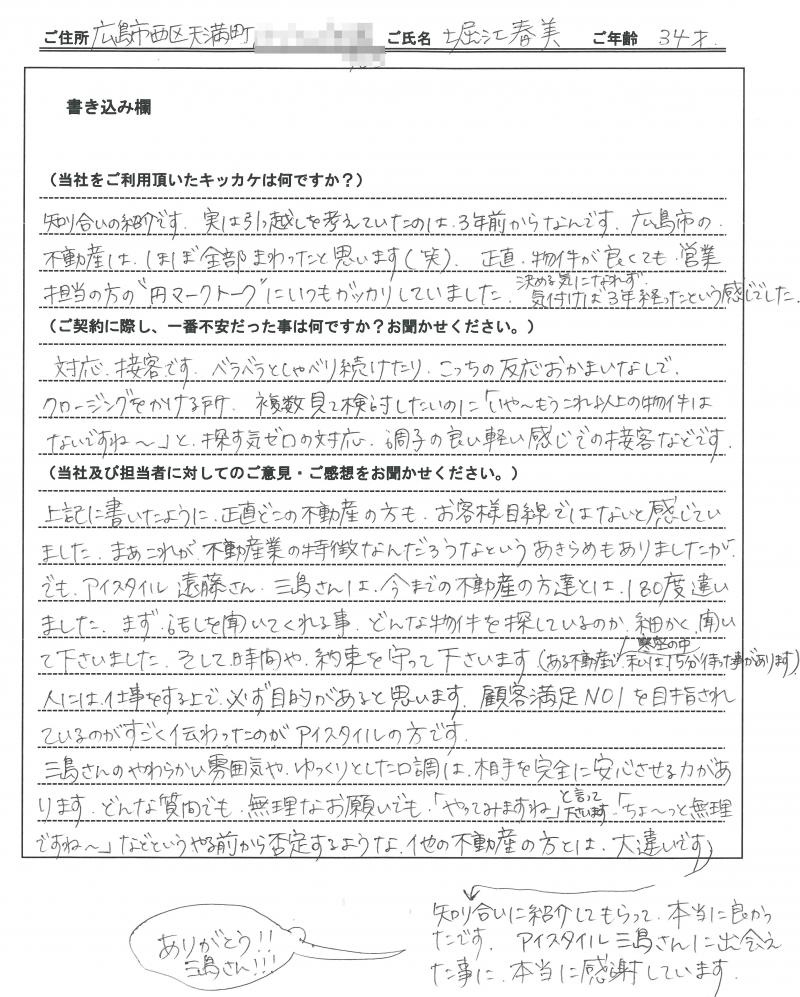 ご住所 広島市西区天満町 ご氏名 堀江春美 ご年齢 34才
書き込み欄
（当社をご利用頂いたキッカケは何ですか？）
知り合いの紹介です。実は引っ越しを考えていたのは、3年前からなんです。広島市の
不動産は、ほぼ全部まわったと思います(笑)。正直、物件が良くても、営業
担当の方の"円マークトーク"にいつもガッカリしていました。決める気になれず、気付けば3年経ったという感じでした。
（ご契約に際し、一番不安だった事は何ですか？お聞かせください。）
対応、接客です。ベラベラとしゃべり続けたり、こっちの反応おかまいなしで、
クロージングをかける所、複数見て検討したいのに「いや～もうこれ以上の物件は
ないですね～」と、探す気ゼロの対応、調子の良い軽い感じでの接客などです。
（当社及び担当者に対してのご意見・ご感想をお聞かせください。）
上記に書いたように、正直どこの不動産の方も、お客様目線ではないと感じてい
ました。まあこれが不動産業の特徴なんだろうなというあきらめもありましたが、
でも、アイスタイル遠藤さん、三島さんは、今までの不動産の方達とは、180度違い
ました。まず、話しを聞いてくれる事、どんな物件を探しているのか、細かく、聞い
て下さいました。そして時間や、約束を守って下さいます(ある不動産で、私は寒空の中15分待った事があります)
人には、仕事をする上で、必ず目的があると思います。顧客満足NO1を目指され
ているのがすごく伝わったのがアイスタイルの方です。
三島さんのやわらかい雰囲気や、ゆっくりとした口調は、相手を完全に安心させる力があ
ります。どんな質問でも、無理なお願いでも、「やってみますね」と言って下さいます。「ちょ～っと無理
ですね～」などというやる前から否定するような、他の不動産の方とは、大違いです
知り合いに紹介してもらって、本当に良かっ
たです。アイスタイル三島さんに出会え
た事に、本当に感謝しています。
ありがとう!!
三島さん!!!